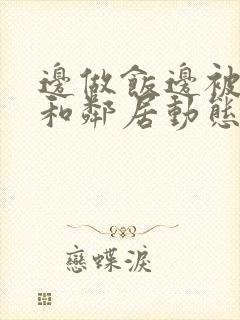 邊做飯邊被
和鄰居動態
戀蝶淚